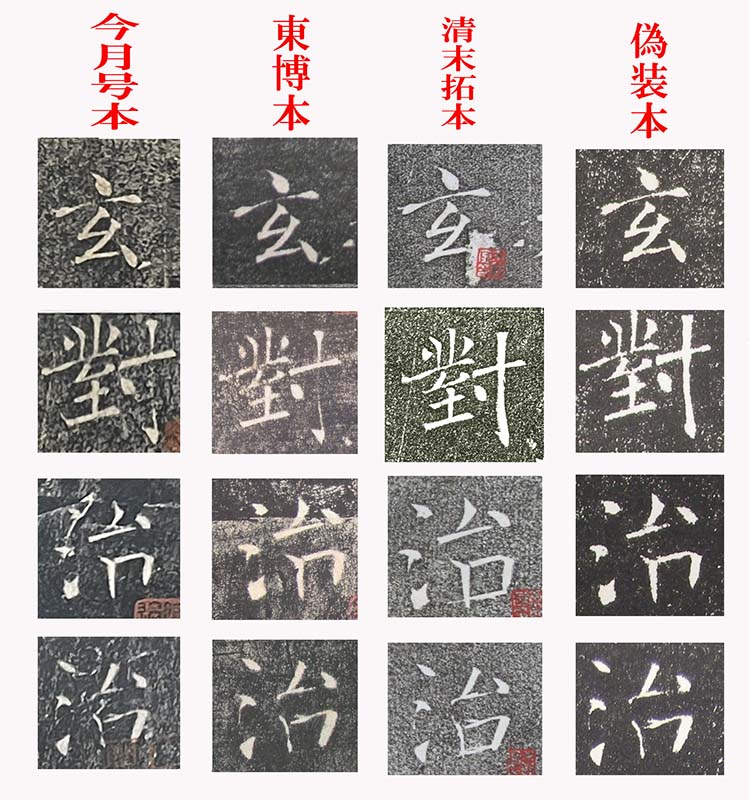 今月号本 東博本 清末拓本 偽装本
玄 玄 玄 玄
對 對 對 對
治 治 治 治
治 治 治 治